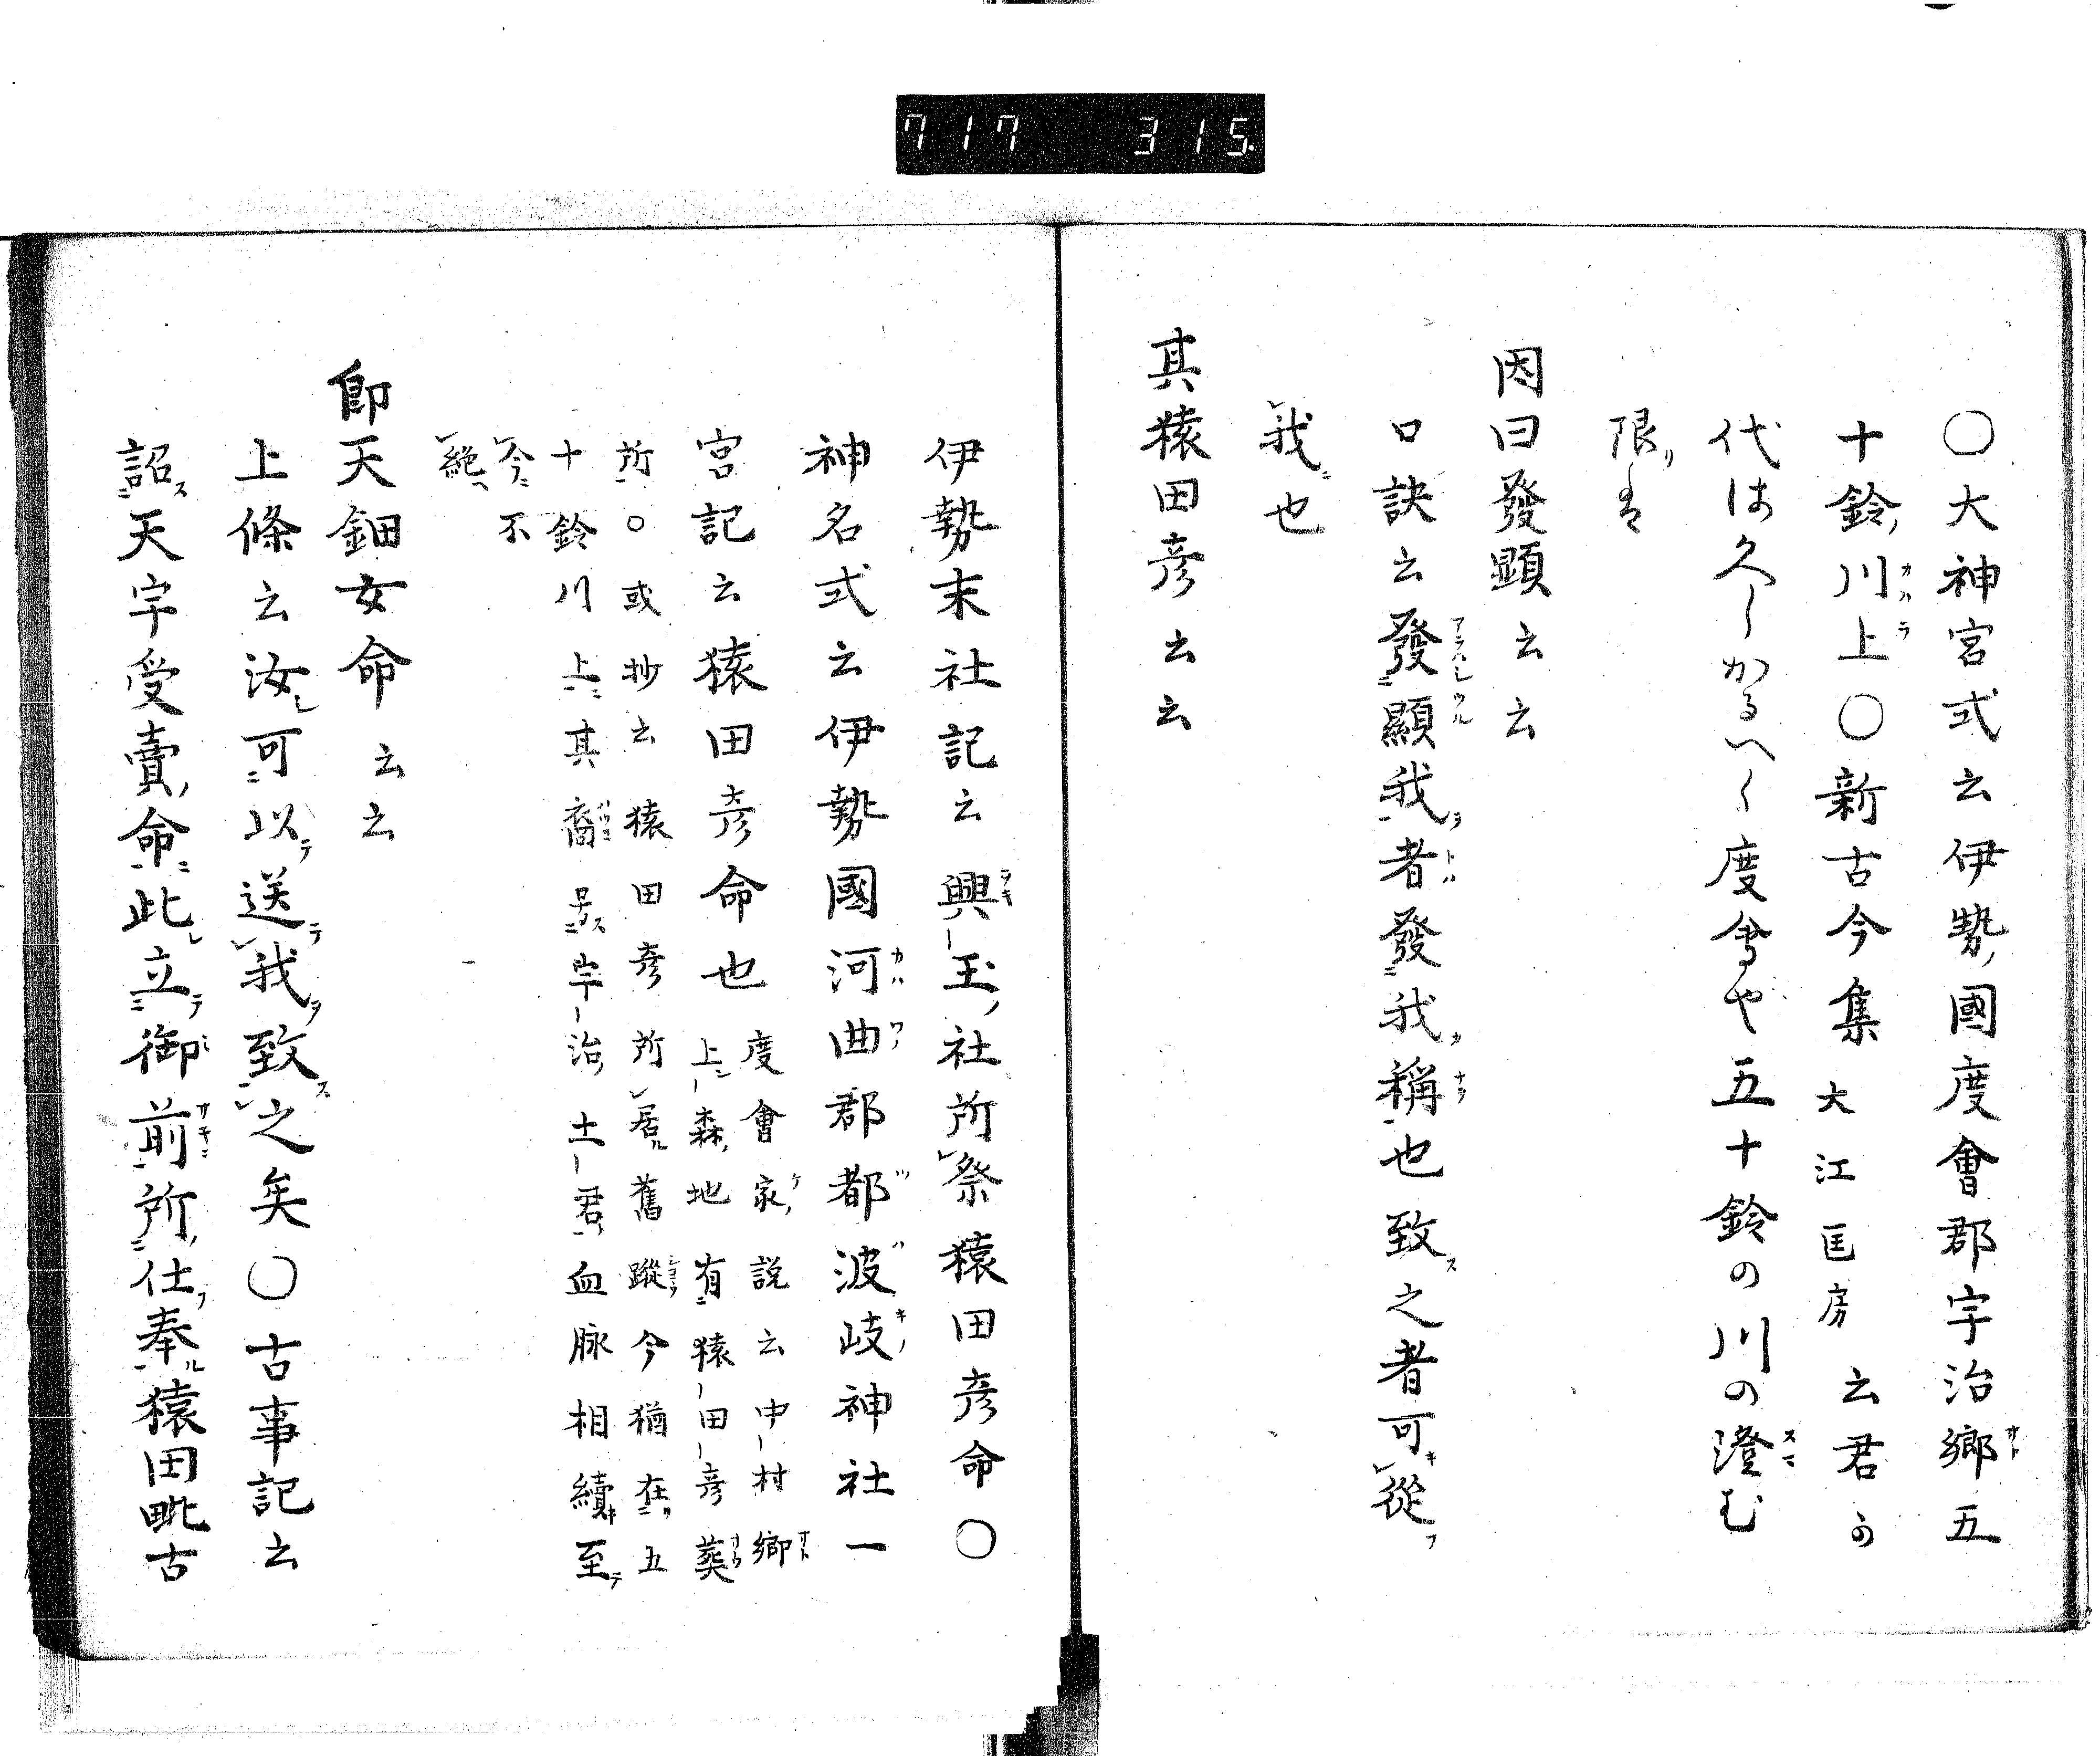 717 315
〇大神宮式云伊勢國度會郡宇治郷五
十鈴川上〇新古今集大江匡房云君か
代は久しかるへし度會や五十鈴の川の澄む
限り
因曰發顯云云
口訣云發顯我者發我稱也致之者可從
我也
其猿田彦云云
伊勢末社記云興玉社所祭猿田彦命〇
神名式云伊勢國河曲郡都波岐神社一
宮記云猿田彦命也
度會家説云中村郷
上森地有猿田彦葬
所〇或抄云猿田彦所居舊蹤今猶在五
十鈴川上其裔号宇治土君血脉相續至
今不
絶
即天鈿女命云云
上條云汝可以送我致之矣〇古事記云
詔天宇受賣命此立御前所仕奉猿田毗古